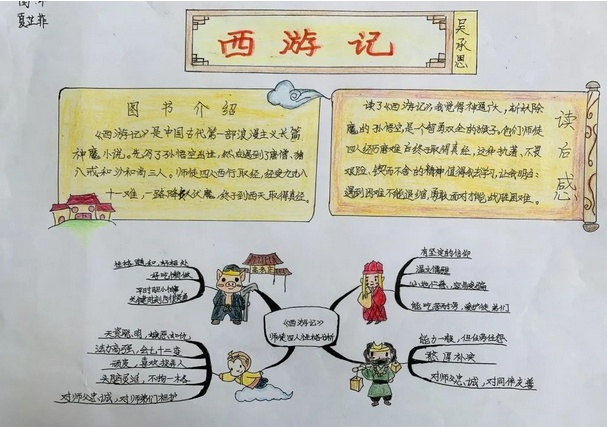 夏芷菲
西游记
吴承恩
图书介绍
《西游记》是中国古代第一部浪漫主义长篇
神魔小说。先写了孙悟空出世,然后遇到了唐僧、猪
八戒和沙和尚三人。师徒四人西行取经,经受九九八
十一难,一路降妖伏魔,终于到西天取得真经。
读后感
读了《西游记》我觉得神通广大,斩妖除
魔的孙悟空,是一个智勇双全的猴子。他们师徒
四人经历磨难后终于取得真经,这种执著、不畏
艰险、锲而不舍的精神值得我去学习,让我明白:
遇到困难不能退缩,勇敢面对才能战胜困难。
《西游记》
师徒四人性格分析
性格温和,好相处
好吃懒做
有坚定的信仰
温文儒雅
能吃苦耐劳,爱护徒弟们
天资聪明,嫉恶如仇
法力高强,会七十二变
顽皮,喜欢捉弄人
头脑灵活,不拘一格
对师父忠诚,对师弟们袒护
能力一般,但任劳任怨
憨厚朴实
对师父忠诚,对同伴友善